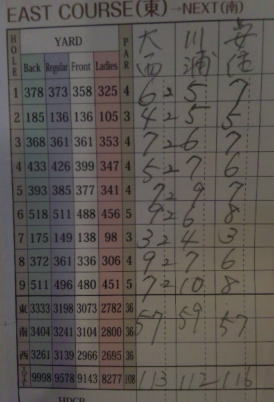 EAST COURSE(東)→NEXT(南)
HOLE YARD PAR 大西 川浦
Back Regular Front Ladies
1 378 373 358 325 4 6 2 5 7
2 185 136 136 105 3 4 2 5 5
3 368 361 361 353 4 7 2 6 7
4 433 426 399 347 4 5 2 7 6
5 393 385 377 341 4 7 2 9 7
6 518 511 488 456 5 9 2 6 8
7 175 149 138 98 3 3 2 4 3
8 372 361 336 306 4 9 2 7 6
9 511 496 480 451 5 7 2 10 8
東 3333 3198 3073 2782 36 57 59 57
南 3404 3241 3104 2800 36
西 3261 3139 2966 2695 36
9998 9578 9143 8277 108 113 112 116
HDCP